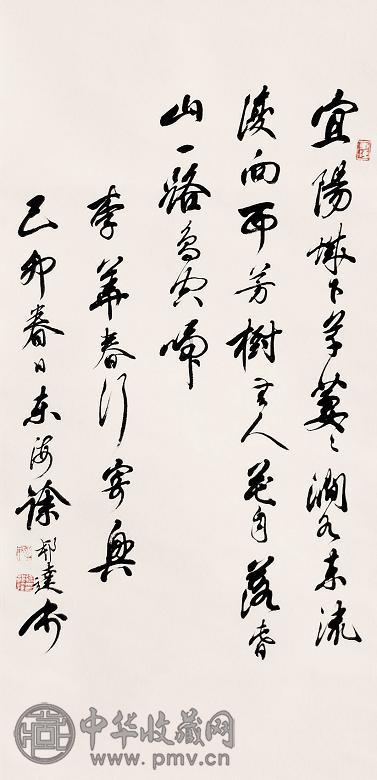 宜陽城下草萋〻澗水東流
復向西芳樹無人花自落春
山一路鳥空啼
李華春行寄興
己卯春日東海徐邦達書
中华收藏网
www.pmv.cn